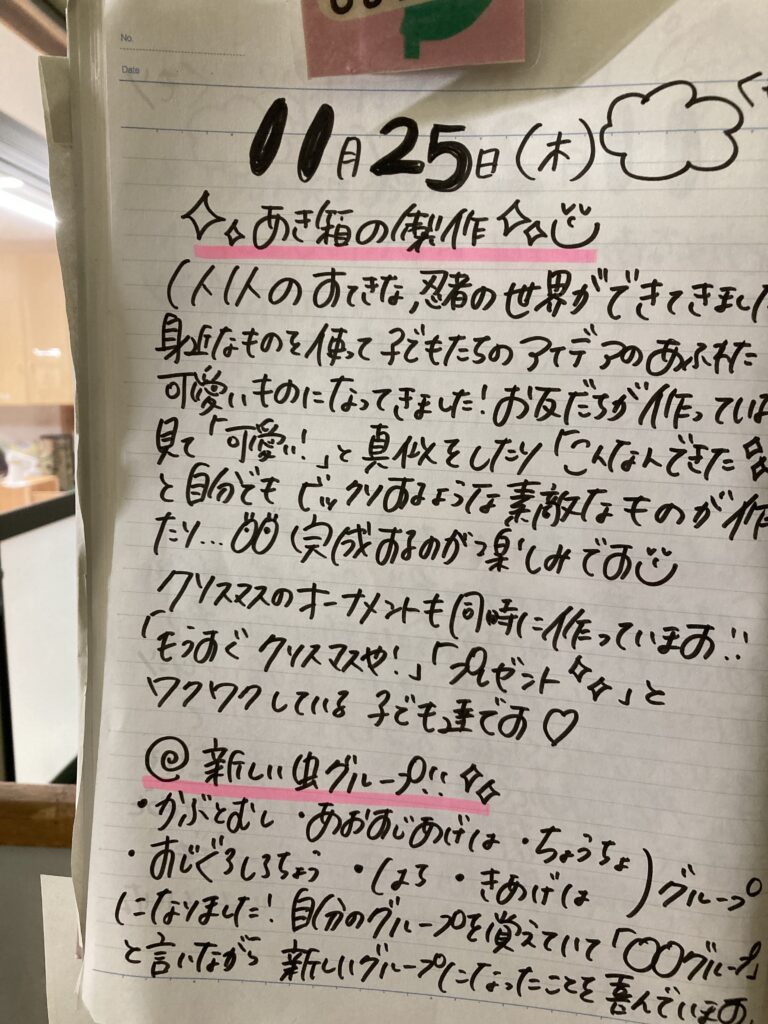 No.
Date
11月25日(木)
あき箱の製作
1人1人のすてきな,忍者の世界ができてきまし
身近なものを使って子どもたちのアイデアのあふれた
可愛いものになってきました!お友だちが作っている
見て「可愛い!」と真似をしたり「こんなんできた
と自分でもビックリするような素敵なものが作
たり…完成するのが楽しみです
クリスマスのオーナメントも同時に作っています!!
「もうすぐクリスマスや!」「プレゼント」と
ワクワクしている子ども達です♡
新しい虫グループ!!
・かぶとむし・あおすじあげは・ちょうちょ
・すじぐろしろちょう・しほろ・きあげは)グループ
になりました!自分のグループを覚えていて「〇〇グループ」
と言いながら新しいグループになったことを喜んでいます。